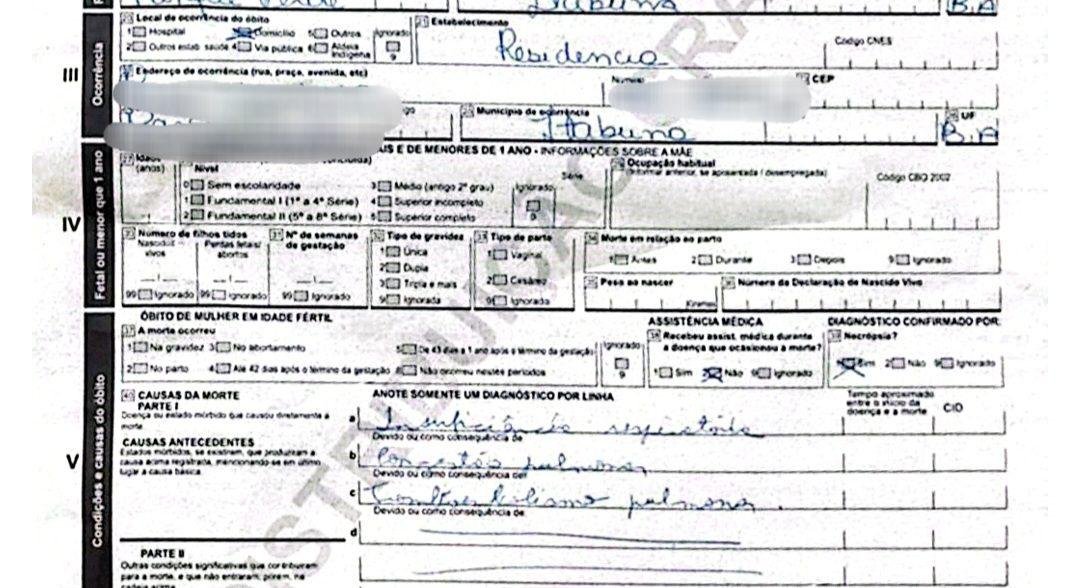 Itabuna
B.A
20 Local de ocorrência do óbito
1 Hospital
Domicílio
5 Outros
Ignorado
2 Outros estab. saúde
4 Via pública
6 Aldeia indígena
9
21 Estabelecimento
Residencia
Código CNES
III
Ocorrência
Endereço de ocorrência (rua, praça, avenida, etc)
Número
CEP
Município de ocorrência
Itabuna
UF
B.A
IS E DE MENORES DE 1 ANO - INFORMAÇÕES SOBRE A MÃE
IV
Fetal ou menor que 1 ano
27 Idade (anos)
Nível
Série
Ignorado
0 Sem escolaridade
3 Médio (antigo 2º grau)
1 Fundamental I (1ª a 4ª Série)
4 Superior incompleto
2 Fundamental II (5ª a 8ª Série)
5 Superior completo
9
Ocupação habitual
(informar anterior, se aposentada / desempregada)
Código CBO 2002
Número de filhos tidos
Nascidos vivos
Perdas fetais/ abortos
99 Ignorado
99 Ignorado
31 Nº de semanas de gestação
99 Ignorado
Tipo de gravidez
1 Única
2 Dupla
3 Tripla e mais
9 Ignorada
33 Tipo de parto
1 Vaginal
2 Cesáreo
9 Ignorado
34 Morte em relação ao parto
1 Antes
2 Durante
3 Depois
9 Ignorado
Peso ao nascer
Gramas
Número da Declaração de Nascido Vivo
V
Condições e causas do óbito
ÓBITO DE MULHER EM IDADE FÉRTIL
37 A morte ocorreu
1 Na gravidez
3 No abortamento
5 De 43 dias a 1 ano após o término da gestação
Ignorado
2 No parto
4 Até 42 dias após o término da gestação
8 Não ocorreu nestes períodos
9
ASSISTÊNCIA MÉDICA
38 Recebeu assist. médica durante a doença que ocasionou a morte?
1 Sim
Não
9 Ignorado
DIAGNÓSTICO CONFIRMADO POR:
39 Necrópsia?
Sim
2 Não
9 Ignorado
40 CAUSAS DA MORTE
PARTE I
Doença ou estado mórbido que causou diretamente a morte
CAUSAS ANTECEDENTES
Estados mórbidos, se existirem, que produziram a causa acima registrada, mencionando-se em último lugar a causa básica.
ANOTE SOMENTE UM DIAGNÓSTICO POR LINHA
Tempo aproximado entre o início da doença e a morte
CID
a Insuficiência respiratória
Devido ou como consequência de
b Congestão pulmonar
Devido ou como consequência de:
c Tromboembolismo pulmonar
Devido ou como consequência de:
d
PARTE II
Outras condições significativas que contribuíram para a morte, e que não entraram, porém, na cadeia acima